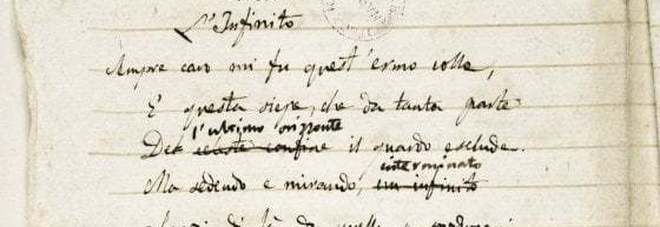 L'Infinito
Sempre caro mi fu quest'ermo colle,
E questa siepe, che da tanta parte
l'ultimo orizzonte
Del celeste confine il guardo esclude.
interminato
Ma sedendo e mirando, un infinito
di là da quella